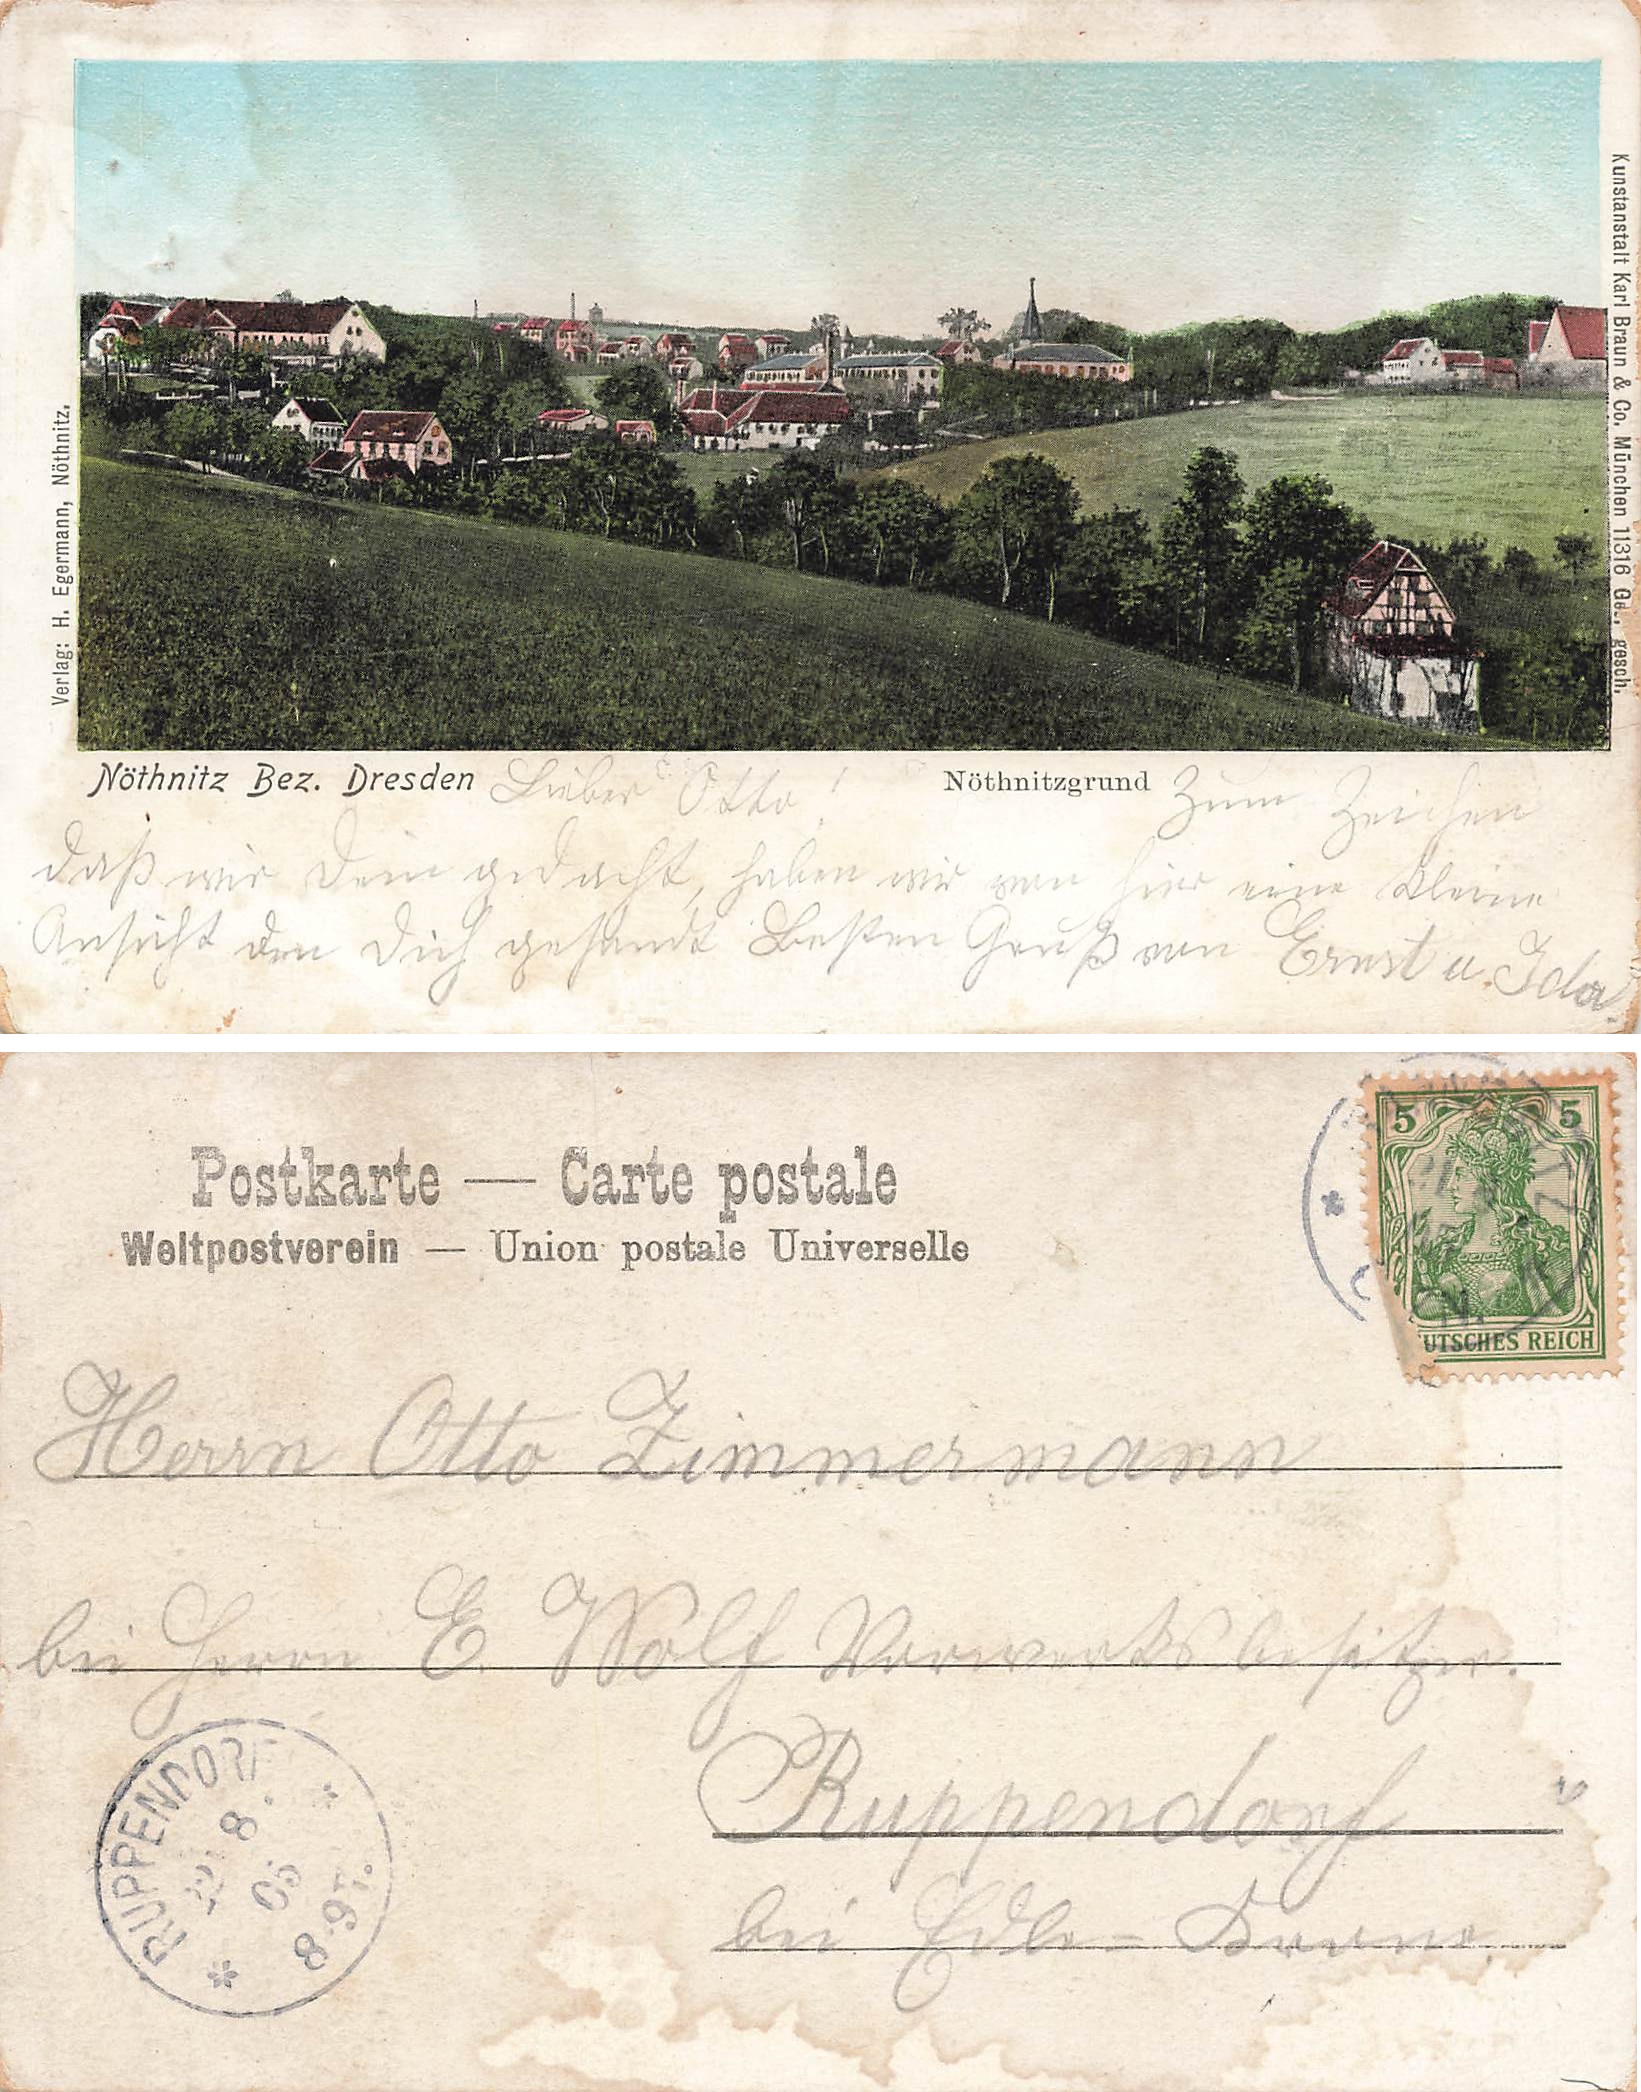 Kunstanstalt Karl Braun & Co. München 11316 Ge., gesch.
Verlag: H. Egermann, Nöthnitz.
Nöthnitz Bez. Dresden Lieber Otto! Nöthnitzgrund Zum Zeichen
daß wir Dein gedacht, haben wir von hier eine kleine
Ansicht den Dich gesandt Besten Gruß von Ernst u. Ida.
Postkarte — Carte postale
Weltpostverein — Union postale Universelle
5 5
UTSCHES REICH
Herrn Otto Zimmermann
bei Herrn E. Wolf Vorwerksbesitzer.
Ruppendorf
bei Edle-Krone.
RUPPENDORF
22 8.
05
8-9V.